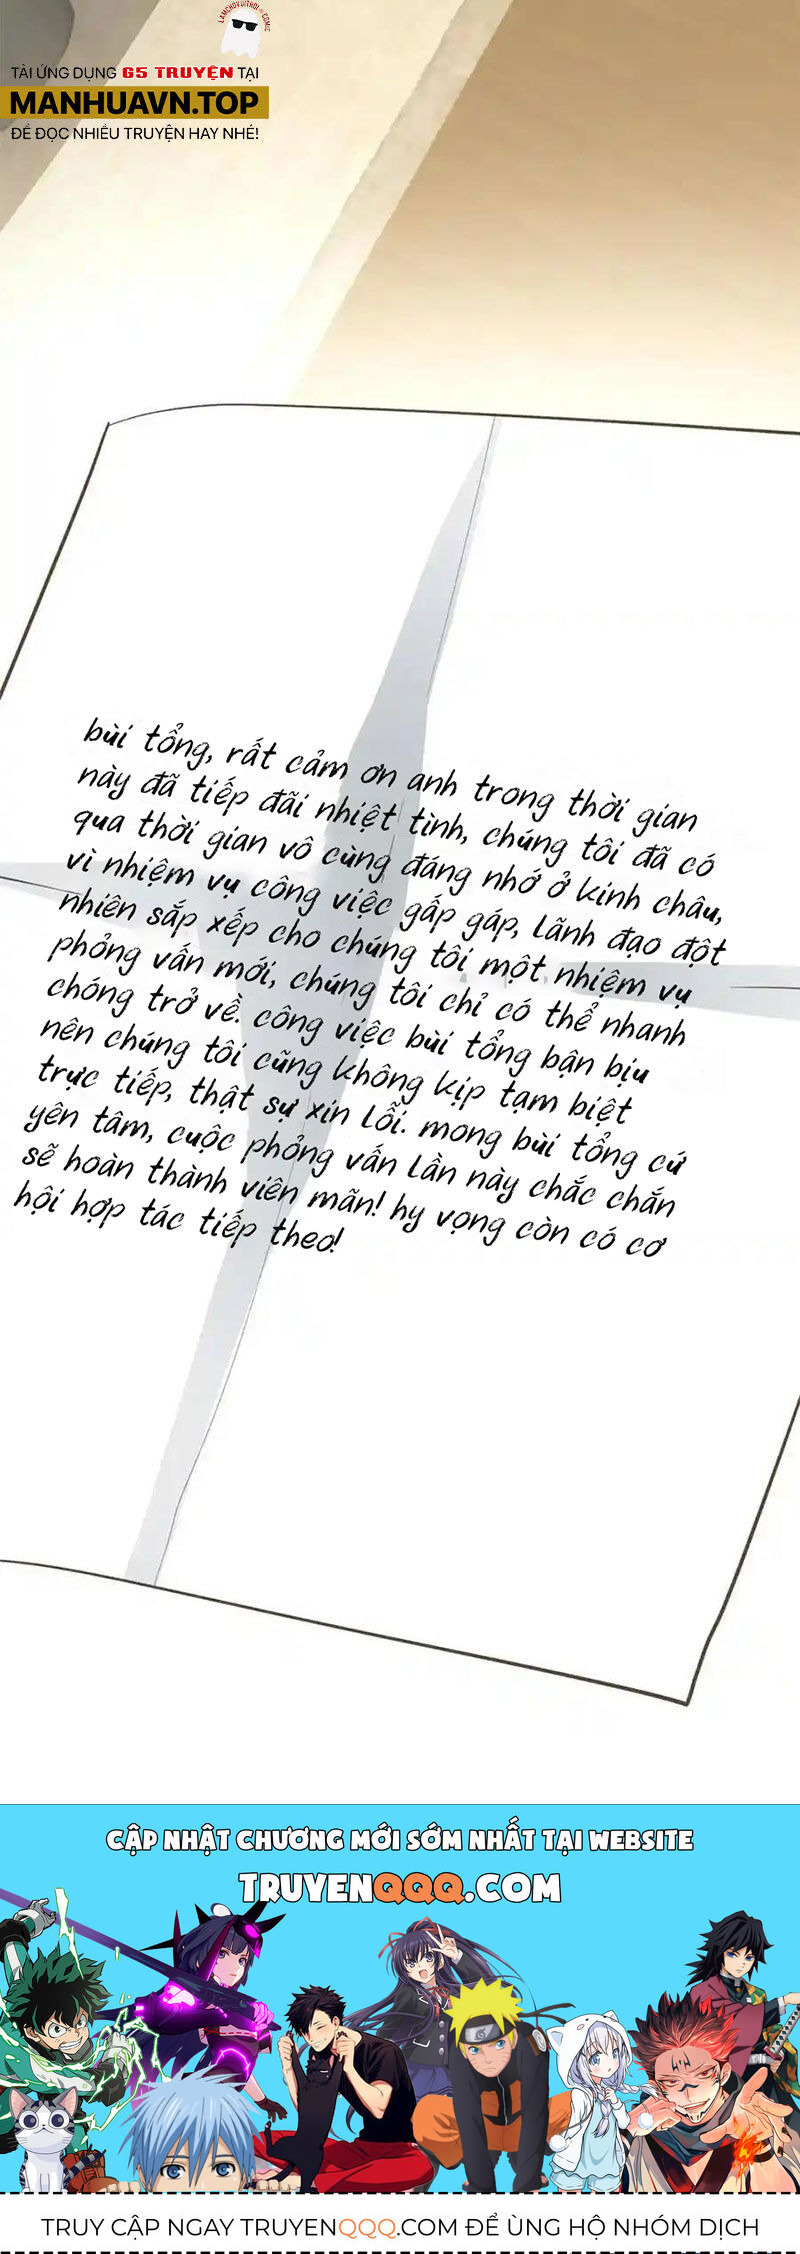 LAMCHOVUITHOI COMIC
TẢI ỨNG DỤNG G5 TRUYỆN TẠI
MANHUAVN.TOP
ĐỂ ĐỌC NHIỀU TRUYỆN HAY NHÉ!
bùi tổng, rất cảm ơn anh trong thời gian
này đã tiếp đãi nhiệt tình, chúng tôi đã có
qua thời gian vô cùng đáng nhớ ở kinh châu,
vì nhiệm vụ công việc gấp gáp, lãnh đạo đột
nhiên sắp xếp cho chúng tôi một nhiệm vụ
phỏng vấn mới, chúng tôi chỉ có thể nhanh
chóng trở về. công việc bùi tổng bận bịu
nên chúng tôi cũng không kịp tạm biệt
trực tiếp, thật sự xin lỗi. mong bùi tổng cứ
yên tâm, cuộc phỏng vấn lần này chắc chắn
sẽ hoàn thành viên mãn! hy vọng còn có cơ
hội hợp tác tiếp theo!
CẬP NHẬT CHƯƠNG MỚI SỚM NHẤT TẠI WEBSITE
TRUYENQQQ.COM
TRUY CẬP NGAY TRUYENQQQ.COM ĐỂ ỦNG HỘ NHÓM DỊCH